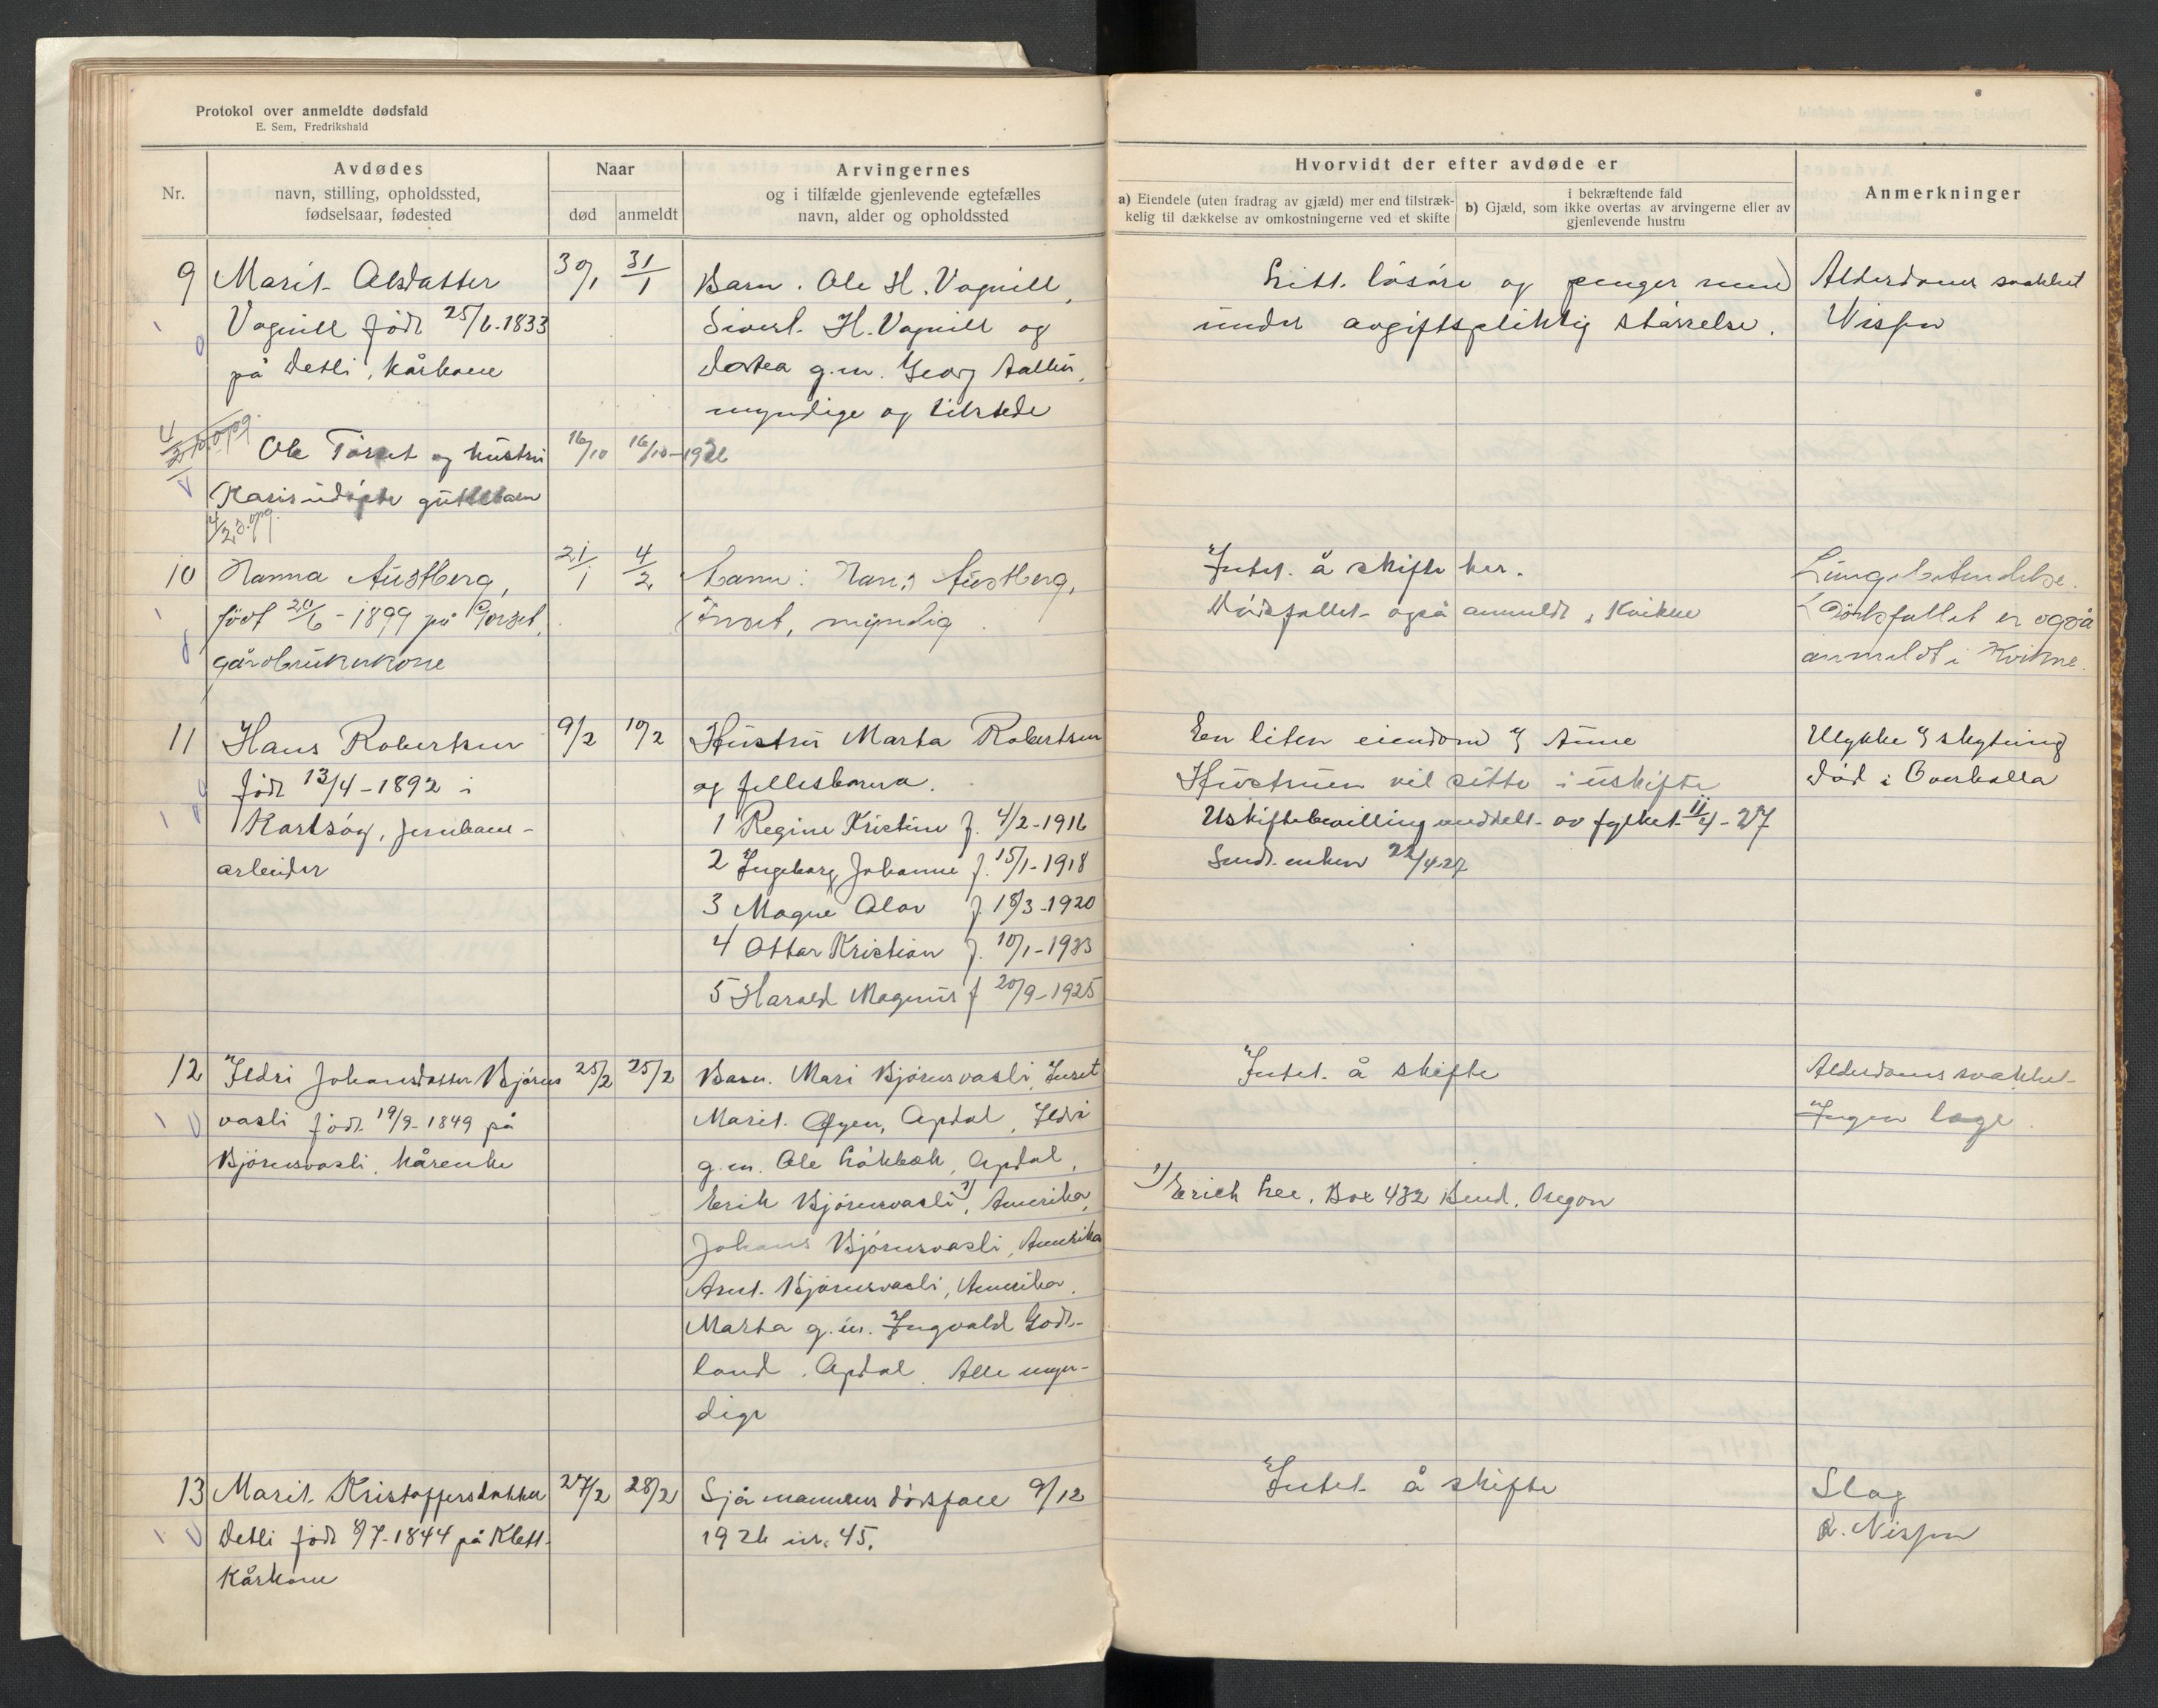 Protokol over anmeldte dødsfald
E. Sem, Fredrikshald
Nr.
Avdødes
navn, stilling, opholdssted,
fødselsaar, fødested
Naar
død
anmeldt
Arvingernes
og i tilfælde gjenlevende egtefælles
navn, alder og opholdssted
Hvorvidt der efter avdøde er
a) Eiendele (uten fradrag av gjæld) mer end tilstræk-
kelig til dækkelse av omkostningerne ved et skifte
i bekræftende fald
b) Gjæld, som ikke overtas av arvingerne eller av
gjenlevende hustru
Anmerkninger
9 Marit Olsdatter 30/1 31/1 Barn. Ole H. Vognill,
Vognill född 25/6-1833 Sivert H. Vognill og
på Detli, kårkone Dortea g.m. Georg
myndige og tilstede
Litt lösöre og penger
under avgiftspliktig störrelse.
Alderdoms svakhet
Nissen
Ole Torset og hustru 16/10 16/10-1926
Karis udöpte guttebarn
4/2 d. opg.
10 Hanna Austberg, 21/1 4/2 Mann: Hans Austberg,
född 20/6-1899 på Gorset, Innset, myndig.
gårdbrukerkone
Intet å skifte her.
Dödsfallet også anmeldt i Kvikne
Lungebetendelse.
Dödsfallet er også
anmeldt i Kvikne.
11 Hans Robertsen 9/2 10/2 Hustru Marta Robertsen
född 13/4-1892 i og fellesbarna.
Kartsög, jernbane- 1 Regine Kristine f. 4/2-1916
arbeider 2 Ingeborg Johanne f. 15/1-1918
3 Magne Olav f. 18/3-1920
4 Ottar Kristian f. 10/1-1923
5 Harald Magnus f 20/9-1925
En liten eiendom i Aune
Hustruen vil sitte i uskifte
Uskiftebevilling meddelt av fylket 11/4-27
Sendt enken 22/4-27
Ulykke skytning
död i Overhalla
12 Ildri Johansdatter Bjørns 25/2 25/2 Barn. Mari Bjørnsvasli, Inset
vasli född 19/9-1849 på Marit Øyen, Opdal, Ildri
Bjørnsvasli, kårenke g.m. Ole Lökbæk, Opdal,
Erik Bjørnsvasli 1), Amerika,
Johans Bjørnsvasli, Amerika
Arnt Bjørnsvasli, Amerika.
Marta g.m. Ingvald God-
land, Opdal. Alle myn-
dige
Intet å skifte
1) Erich Lee, Box 432 Bend, Oregon
Alderdoms svakhet
Ingen læge.
13 Marit Kristoffersdatter 27/2 28/2 Sjå mannens dödsfall 9/12
Detli född 8/7-1844 på Klett- 1926 nr. 45.
Kårkone
Intet å skifte
Slag
R. Nissen